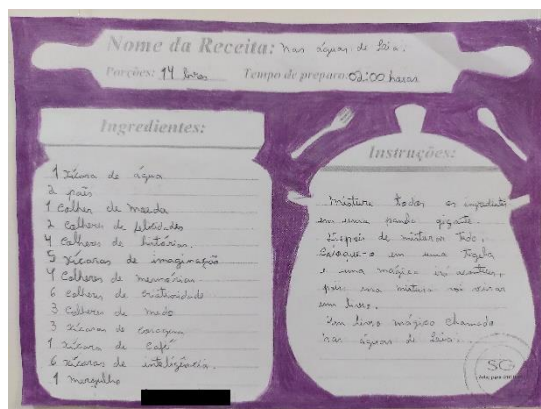 Nome da Receita: nas águas de Laia.
Porções: 14 livros Tempo de preparo: 02:00 horas
Ingredientes:
1 xícara de água
2 pais
1 colher de moeda
2 colheres de felicidades
4 colheres de histórias.
5 xícaras de imaginação
4 colheres de memórias
6 colheres de criatividade
3 colheres de medo
3 xícaras de coragem
1 xícara de café
6 xícaras de inteligência.
1 mergulho
Instruções:
Misture todos os ingredientes
em uma panela gigante.
Depois de misturar tudo,
coloque-o em uma tigela,
e uma mágica irá acontecer,
pois uma mistura vai virar
um livro.
Um livro mágico chamado
nas águas de Laia.
SG